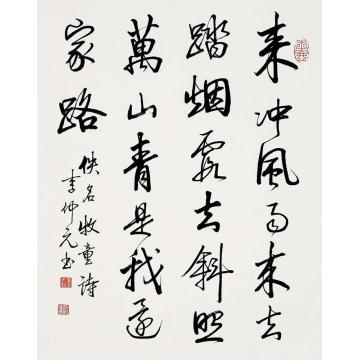 来冲風雨来去
踏烟霞去斜照
萬山青是我還
家路
佚名牧童詩
李仲元书